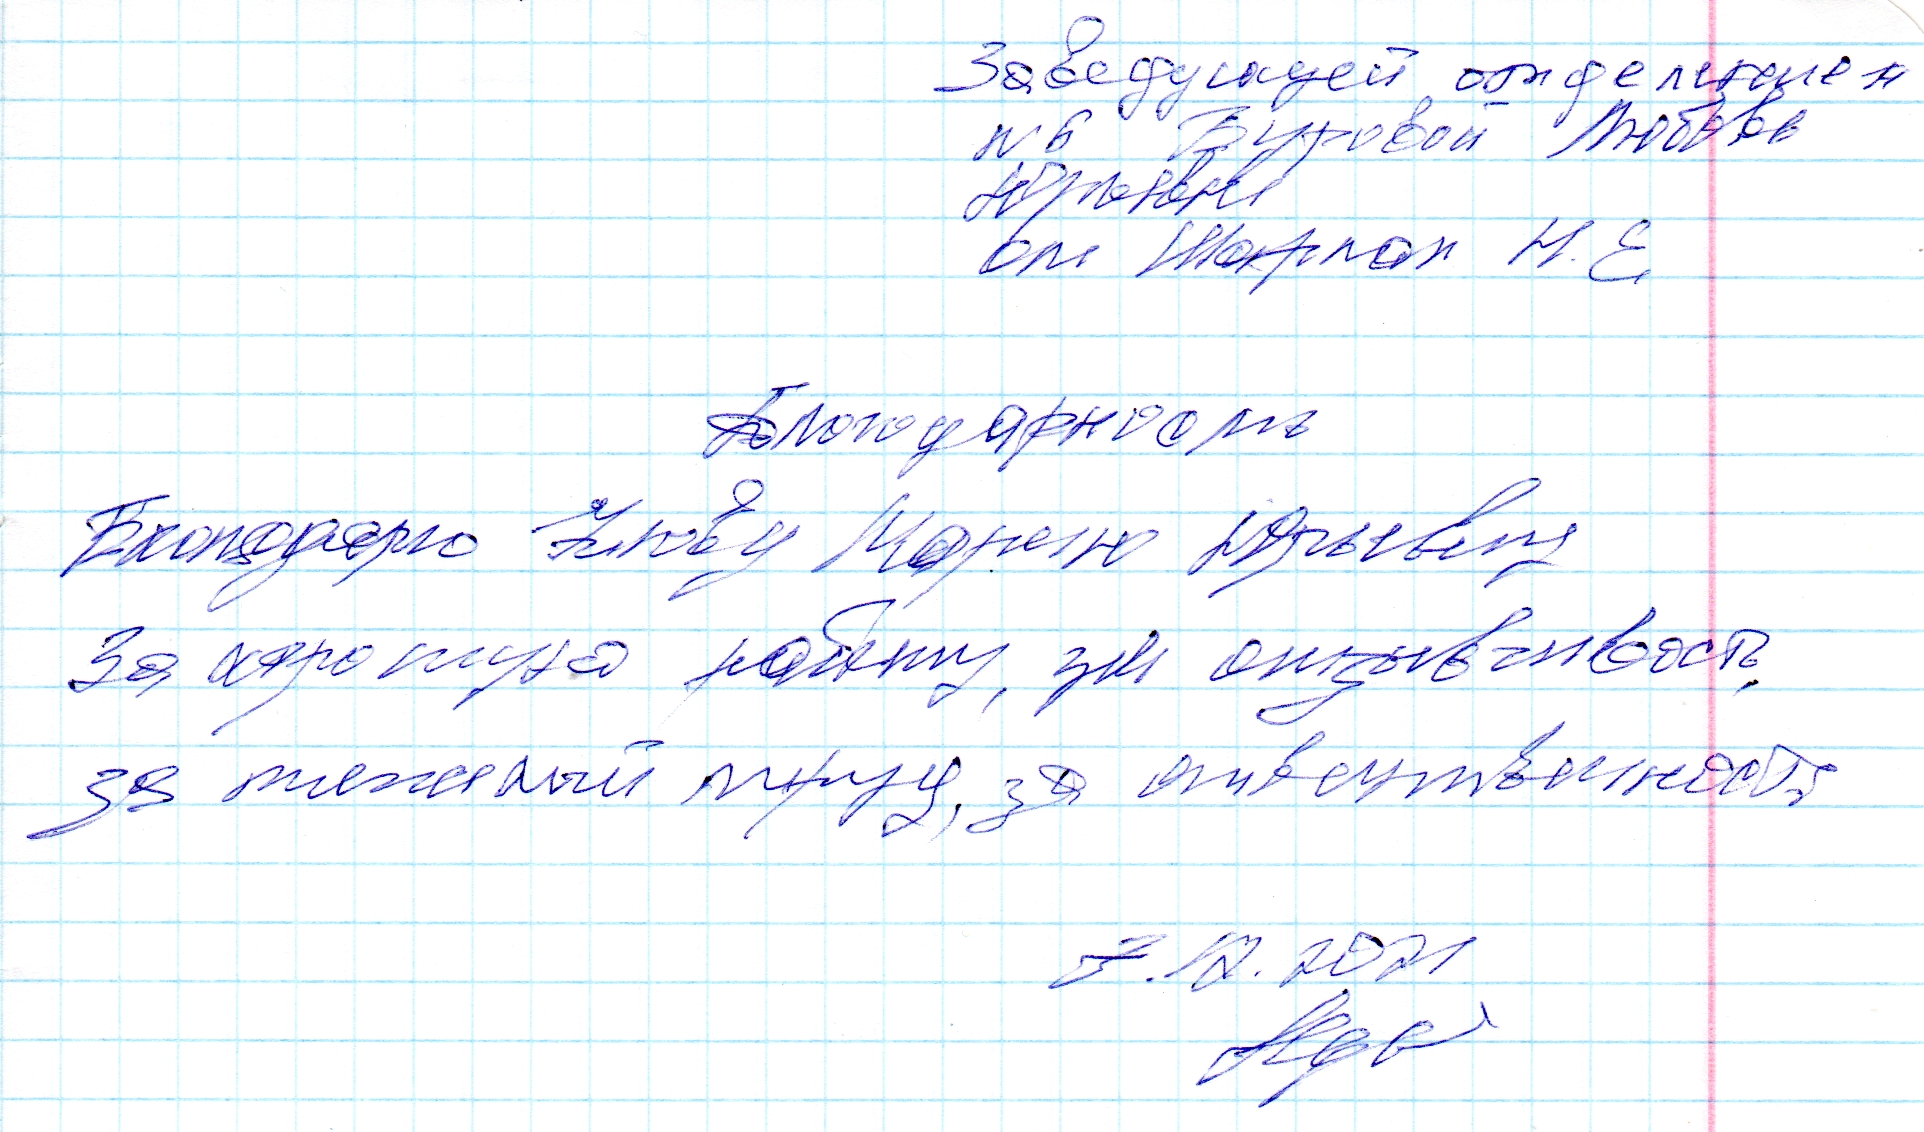 Заведующей отделением
№6 Буровой Любовь
Юрьевне
от Н.Е
Благодарность
Благодарю Марину Юрьевну
За хорошую работу, за отзывчивость,
за тяжелый труд, за ответственность
7.12.2021